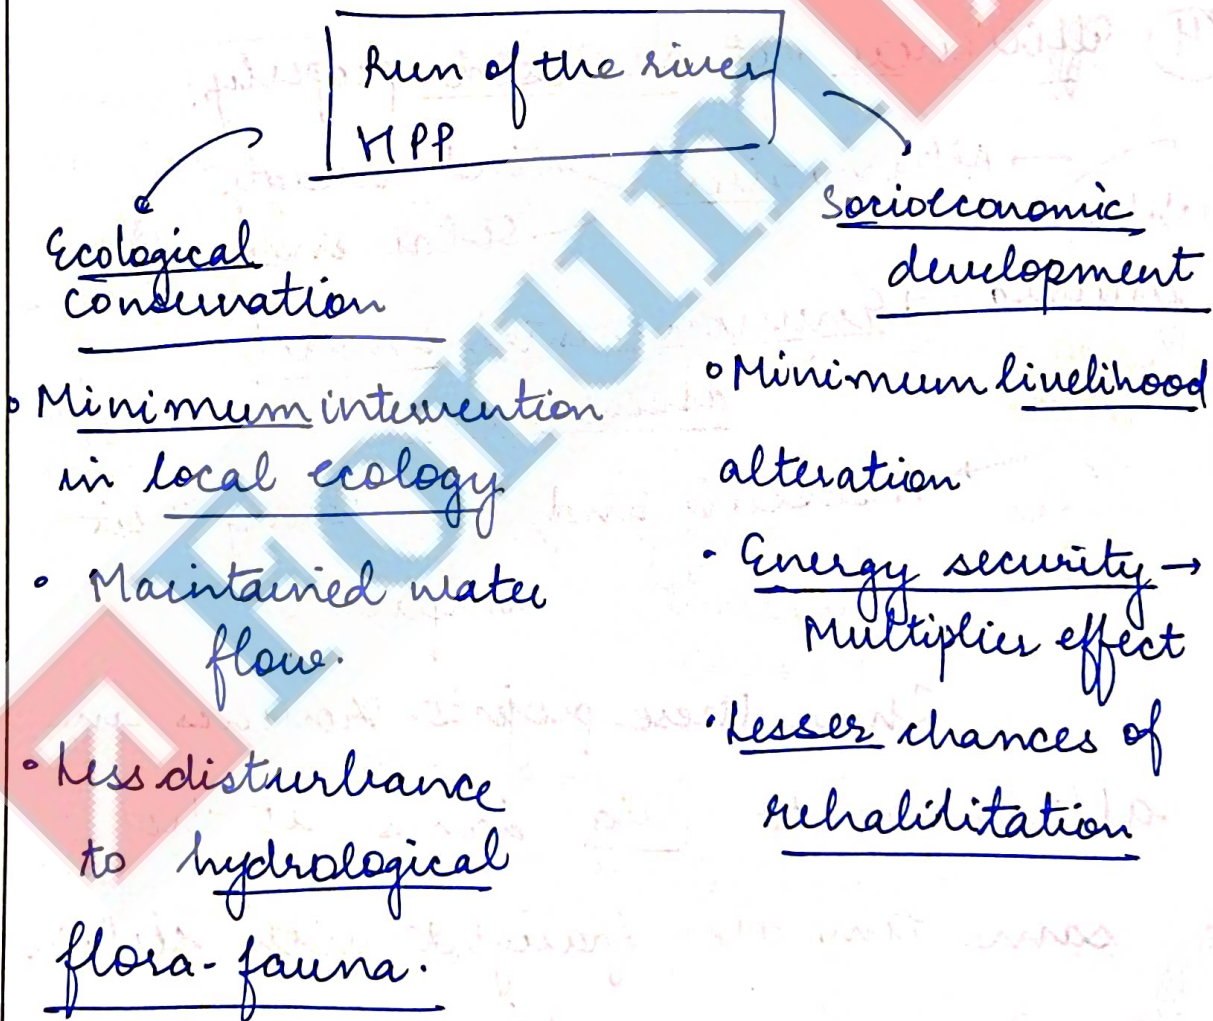 Run of the river
HPP
Ecological
conservation
• Minimum intervention
in local ecology
• Maintained water
flow.
• Less disturbance
to hydrological
flora-fauna.
Socioeconomic
development
• Minimum livelihood
alteration
• Energy security →
Multiplier effect
• Lesser chances of
rehabilitation
Forum